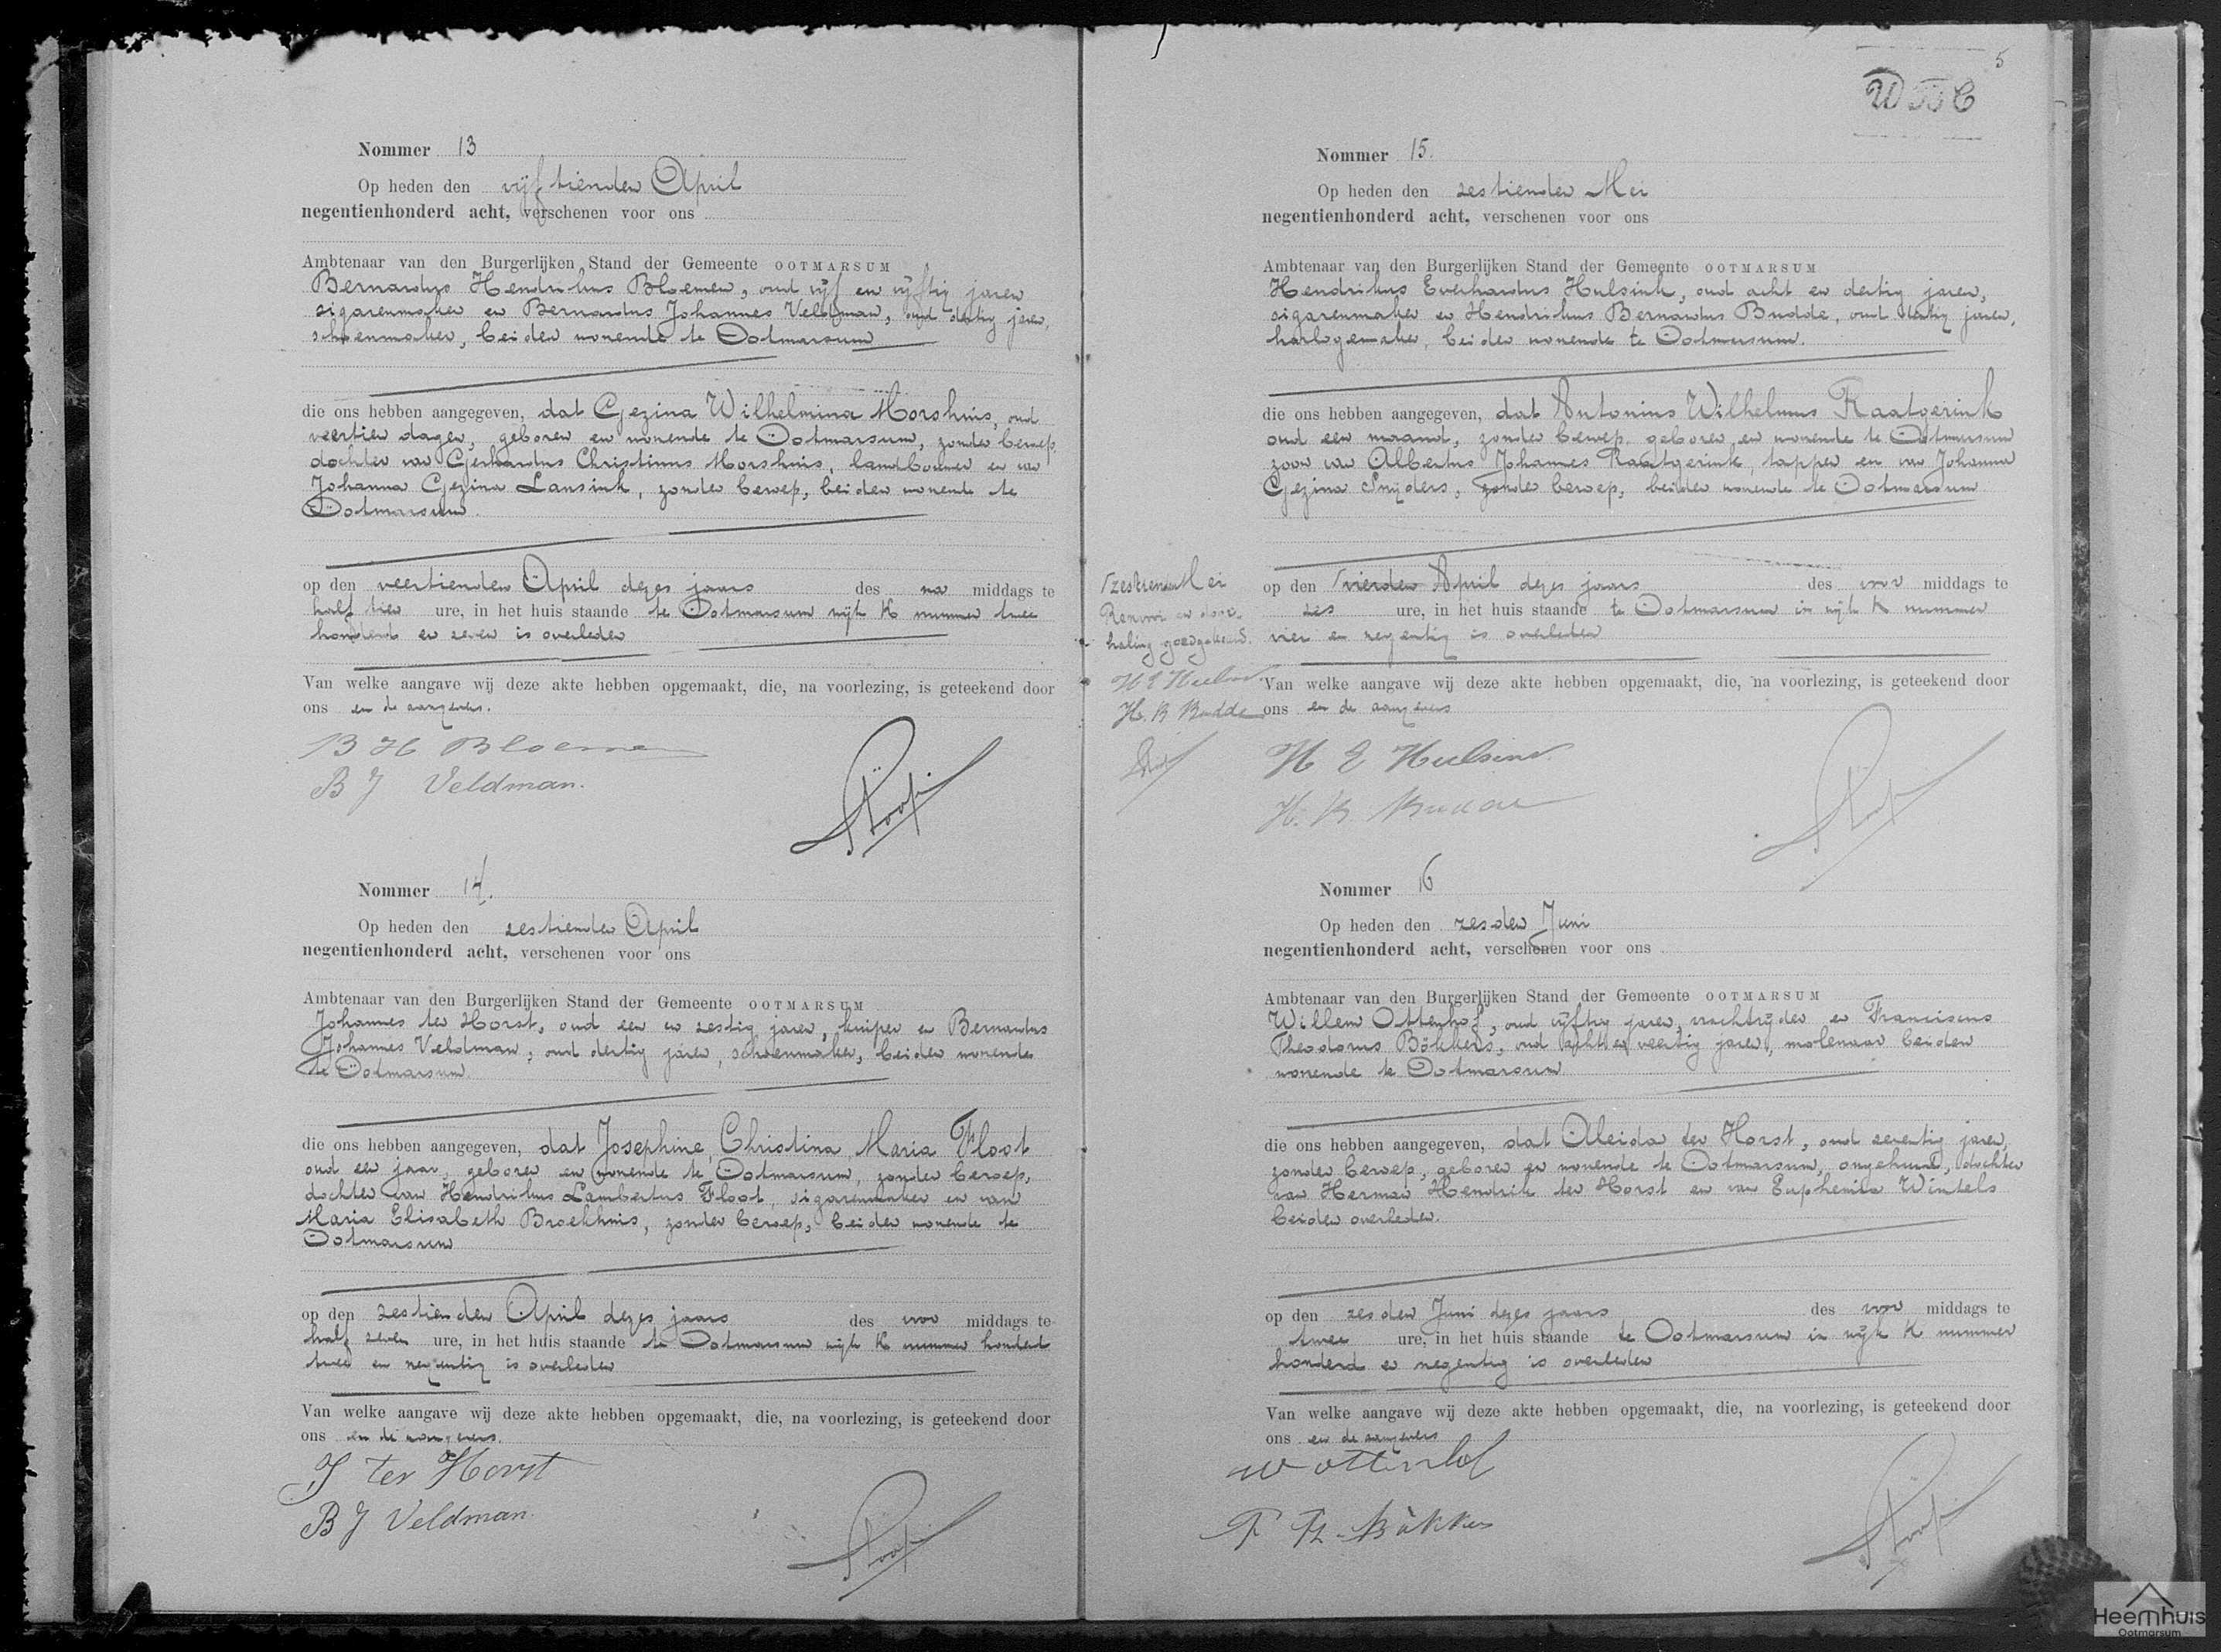 Nommer 13
Op heden den vijftienden April
negentienhonderd acht, verschenen voor ons
Ambtenaar van den Burgerlijken Stand der Gemeente OOTMARSUM
Bernardus Hendrikus Bloemen, oud vijf en vijftig jaren
sigarenmaker en Bernardus Johannes Veldman, oud dertig jaren,
schoenmaker, beiden wonende te Ootmarsum
die ons hebben aangegeven, dat Gezina Wilhelmina Morshuis, oud
veertien dagen, geboren en wonende te Ootmarsum, zonder beroep,
dochter van Gerhardus Christinus Morshuis, landbouwer en van
Johanna Gezina Lansink, zonder beroep, beiden wonende te
Ootmarsum.
op den veertienden April dezes jaars des na middags te
half tien ure, in het huis staande te Ootmarsum wijk K nummer twee
honderd en zeven is overleden
Van welke aangave wij deze akte hebben opgemaakt, die, na voorlezing, is geteekend door
ons en de aangevers.
B H Bloemen
B J Veldman.
Nommer 14.
Op heden den zestienden April
negentienhonderd acht, verschenen voor ons
Ambtenaar van den Burgerlijken Stand der Gemeente OOTMARSUM
Johannes ter Horst, oud een en zestig jaren, kuiper en Bernardus
Johannes Veldman, oud dertig jaren, schoenmaker, beiden wonende
te Ootmarsum.
die ons hebben aangegeven, dat Josephine Christina Maria Floot
oud een jaar, geboren en wonende te Ootmarsum, zonder beroep,
dochter van Hendrikus Lambertus Floot, sigarenmaker en van
Maria Elisabeth Broekhuis, zonder beroep, beiden wonende te
Ootmarsum
op den zestienden April dezes jaars des voor middags te
half zeven ure, in het huis staande te Ootmarsum wijk K nummer honderd
twee en negentig is overleden
Van welke aangave wij deze akte hebben opgemaakt, die, na voorlezing, is geteekend door
ons en de aangevers.
J ter Horst
B J Veldman.
5
Nommer 15.
Op heden den zestienden Mei
negentienhonderd acht, verschenen voor ons
Ambtenaar van den Burgerlijken Stand der Gemeente OOTMARSUM
Hendrikus Everhardus Hulsink, oud acht en dertig jaren,
sigarenmaker en Hendrikus Bernardus Budde, oud dertig jaren,
horlogemaker, beiden wonende te Ootmarsum.
die ons hebben aangegeven, dat Antonius Wilhelmus Raatgerink
oud een maand, zonder beroep, geboren en wonende te Ootmarsum
zoon van Albertus Johannes Raatgerink, tapper en van Johanna
Gezina Snijders, zonder beroep, beiden wonende te Ootmarsum
zestienden Mei
Renvooi en door-
haling goedgekeurd.
H E Hulsink
H. B Budde
op den vierden April dezes jaars des voor middags te
zes ure, in het huis staande te Ootmarsum in wijk K nummer
vier en negentig is overleden
Van welke aangave wij deze akte hebben opgemaakt, die, na voorlezing, is geteekend door
ons en de aangevers
H E Hulsink
H. B. Budde
Nommer 16
Op heden den zesden Juni
negentienhonderd acht, verschenen voor ons
Ambtenaar van den Burgerlijken Stand der Gemeente OOTMARSUM
Willem Ottenhof, oud vijftig jaren, vrachtrijder en Franciscus
Theodorus Bökkers, oud acht en veertig jaren, molenaar beiden
wonende te Ootmarsum
die ons hebben aangegeven, dat Aleida ter Horst, oud zeventig jaren,
zonder beroep, geboren en wonende te Ootmarsum, ongehuwd, dochter
van Herman Hendrik ter Horst en van Euphemia Wintels
beiden overleden.
op den zesden Juni dezes jaars des voor middags te
twee ure, in het huis staande te Ootmarsum in wijk K nummer
honderd en negentig is overleden
Van welke aangave wij deze akte hebben opgemaakt, die, na voorlezing, is geteekend door
ons en de aangevers
W Ottenhof
F Th. Bökkers
Heemhuis
Ootmarsum